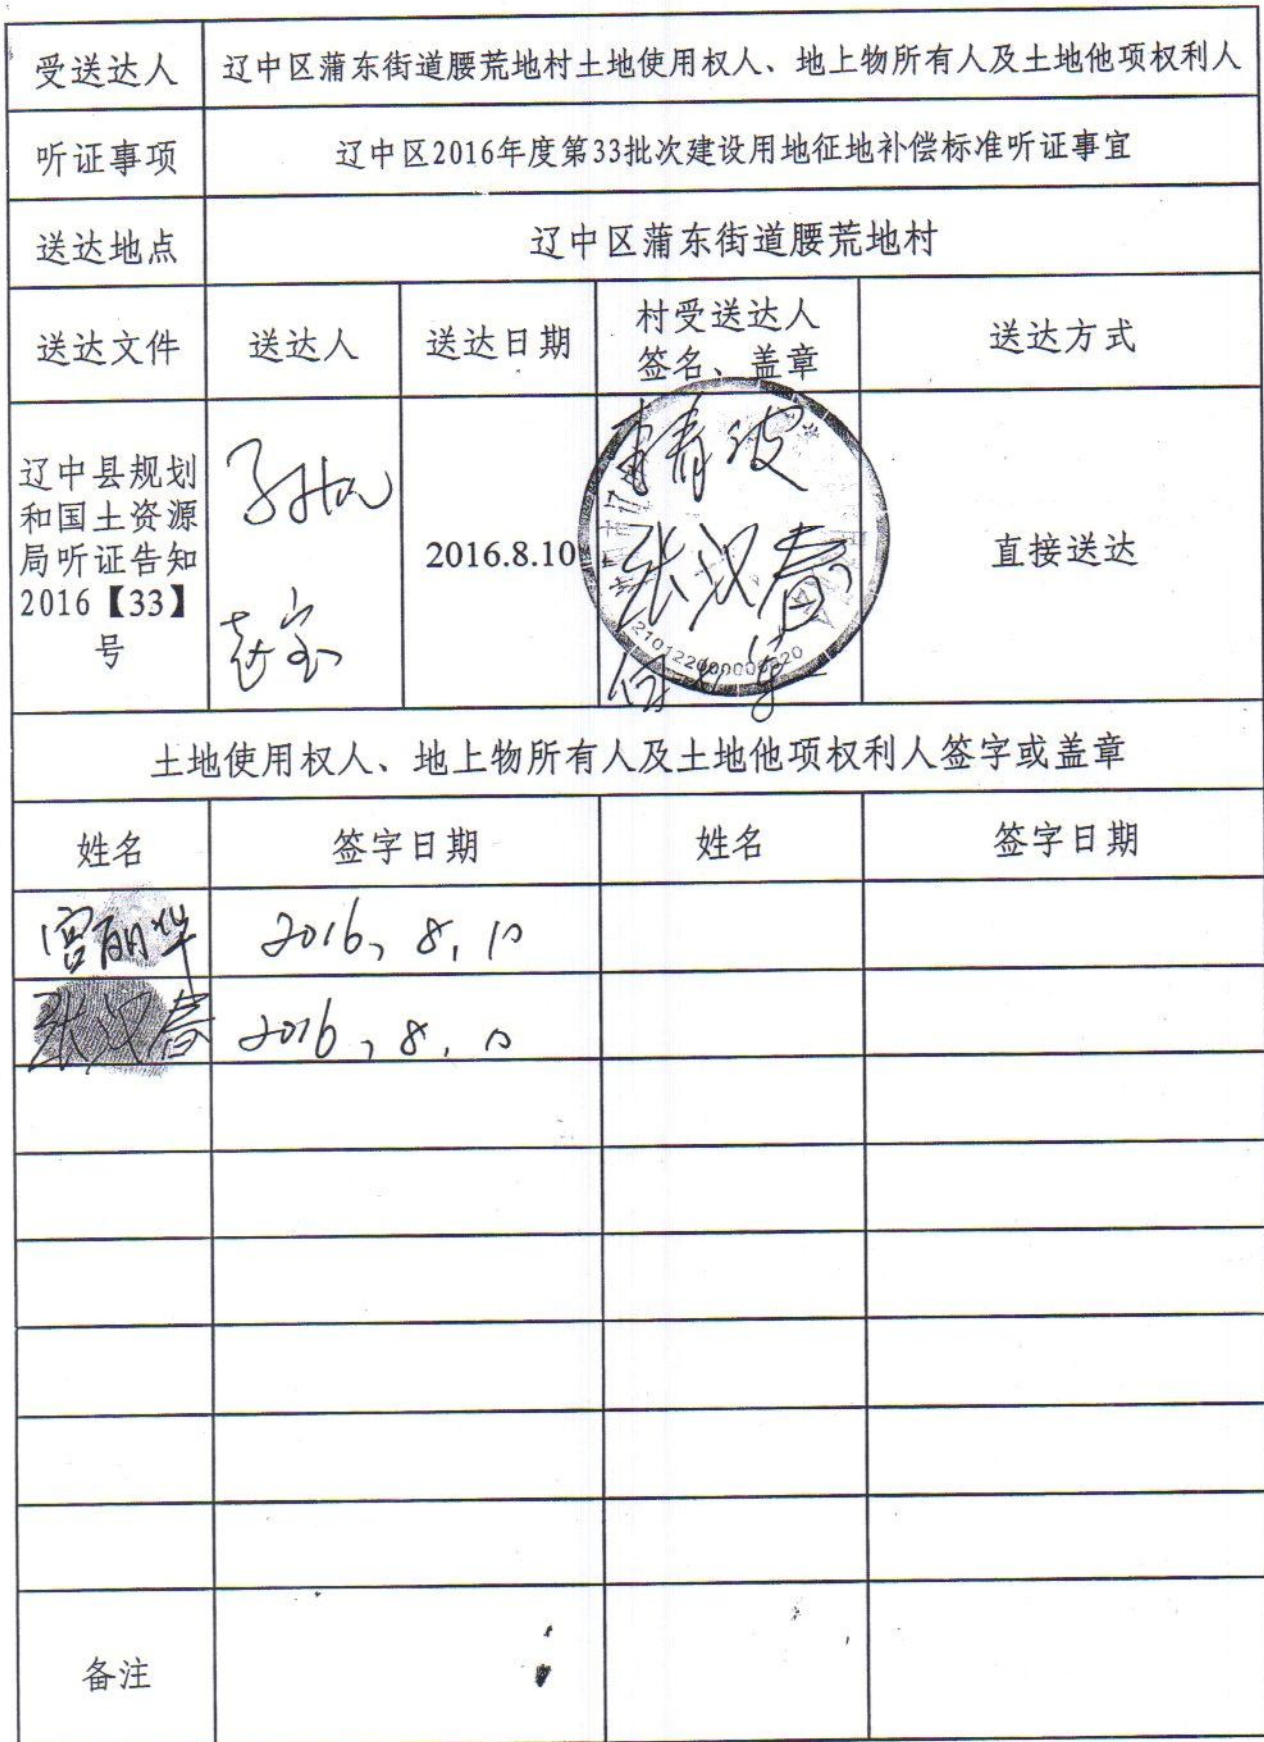 受送达人 辽中区蒲东街道腰荒地村土地使用权人、地上物所有人及土地他项权利人
听证事项 辽中区2016年度第33批次建设用地征地补偿标准听证事宜
送达地点 辽中区蒲东街道腰荒地村
送达文件 送达人 送达日期 村受送达人 送达方式
签名、盖章
辽中县规划
和国土资源
局听证告知
2016【33】
号
2016.8.10
张汉春
直接送达
土地使用权人、地上物所有人及土地他项权利人签字或盖章
姓名 签字日期 姓名 签字日期
宫丽华 2016, 8, 10
张汉春 2016, 8, 10
备注